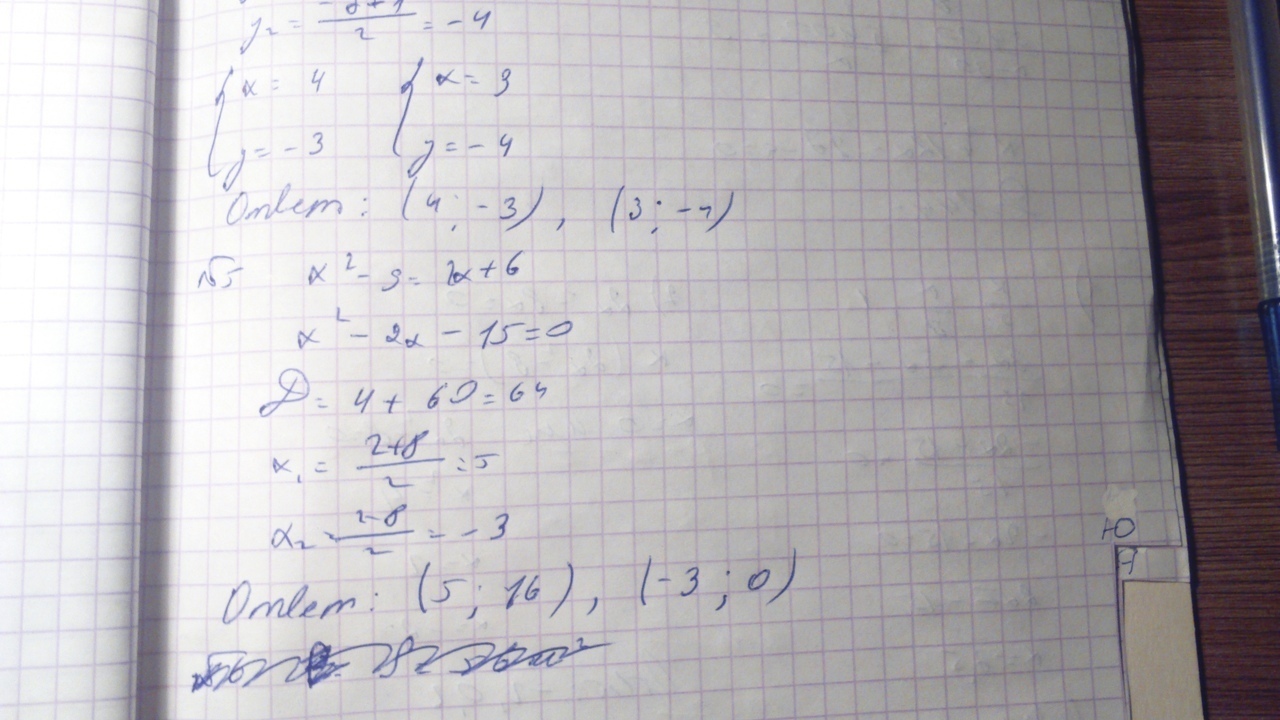 y₂ = (-9+1)/2 = -4
{ x = 4 { x = 3
y = -3 y = -4
Ответ: (4; -3), (3; -4)
№5 x² - 9 = 2x + 6
x² - 2x - 15 = 0
D = 4 + 60 = 64
x₁ = (2+8)/2 = 5
x₂ = (2-8)/2 = -3
Ответ: (5; 16), (-3; 0)
Ю
Я